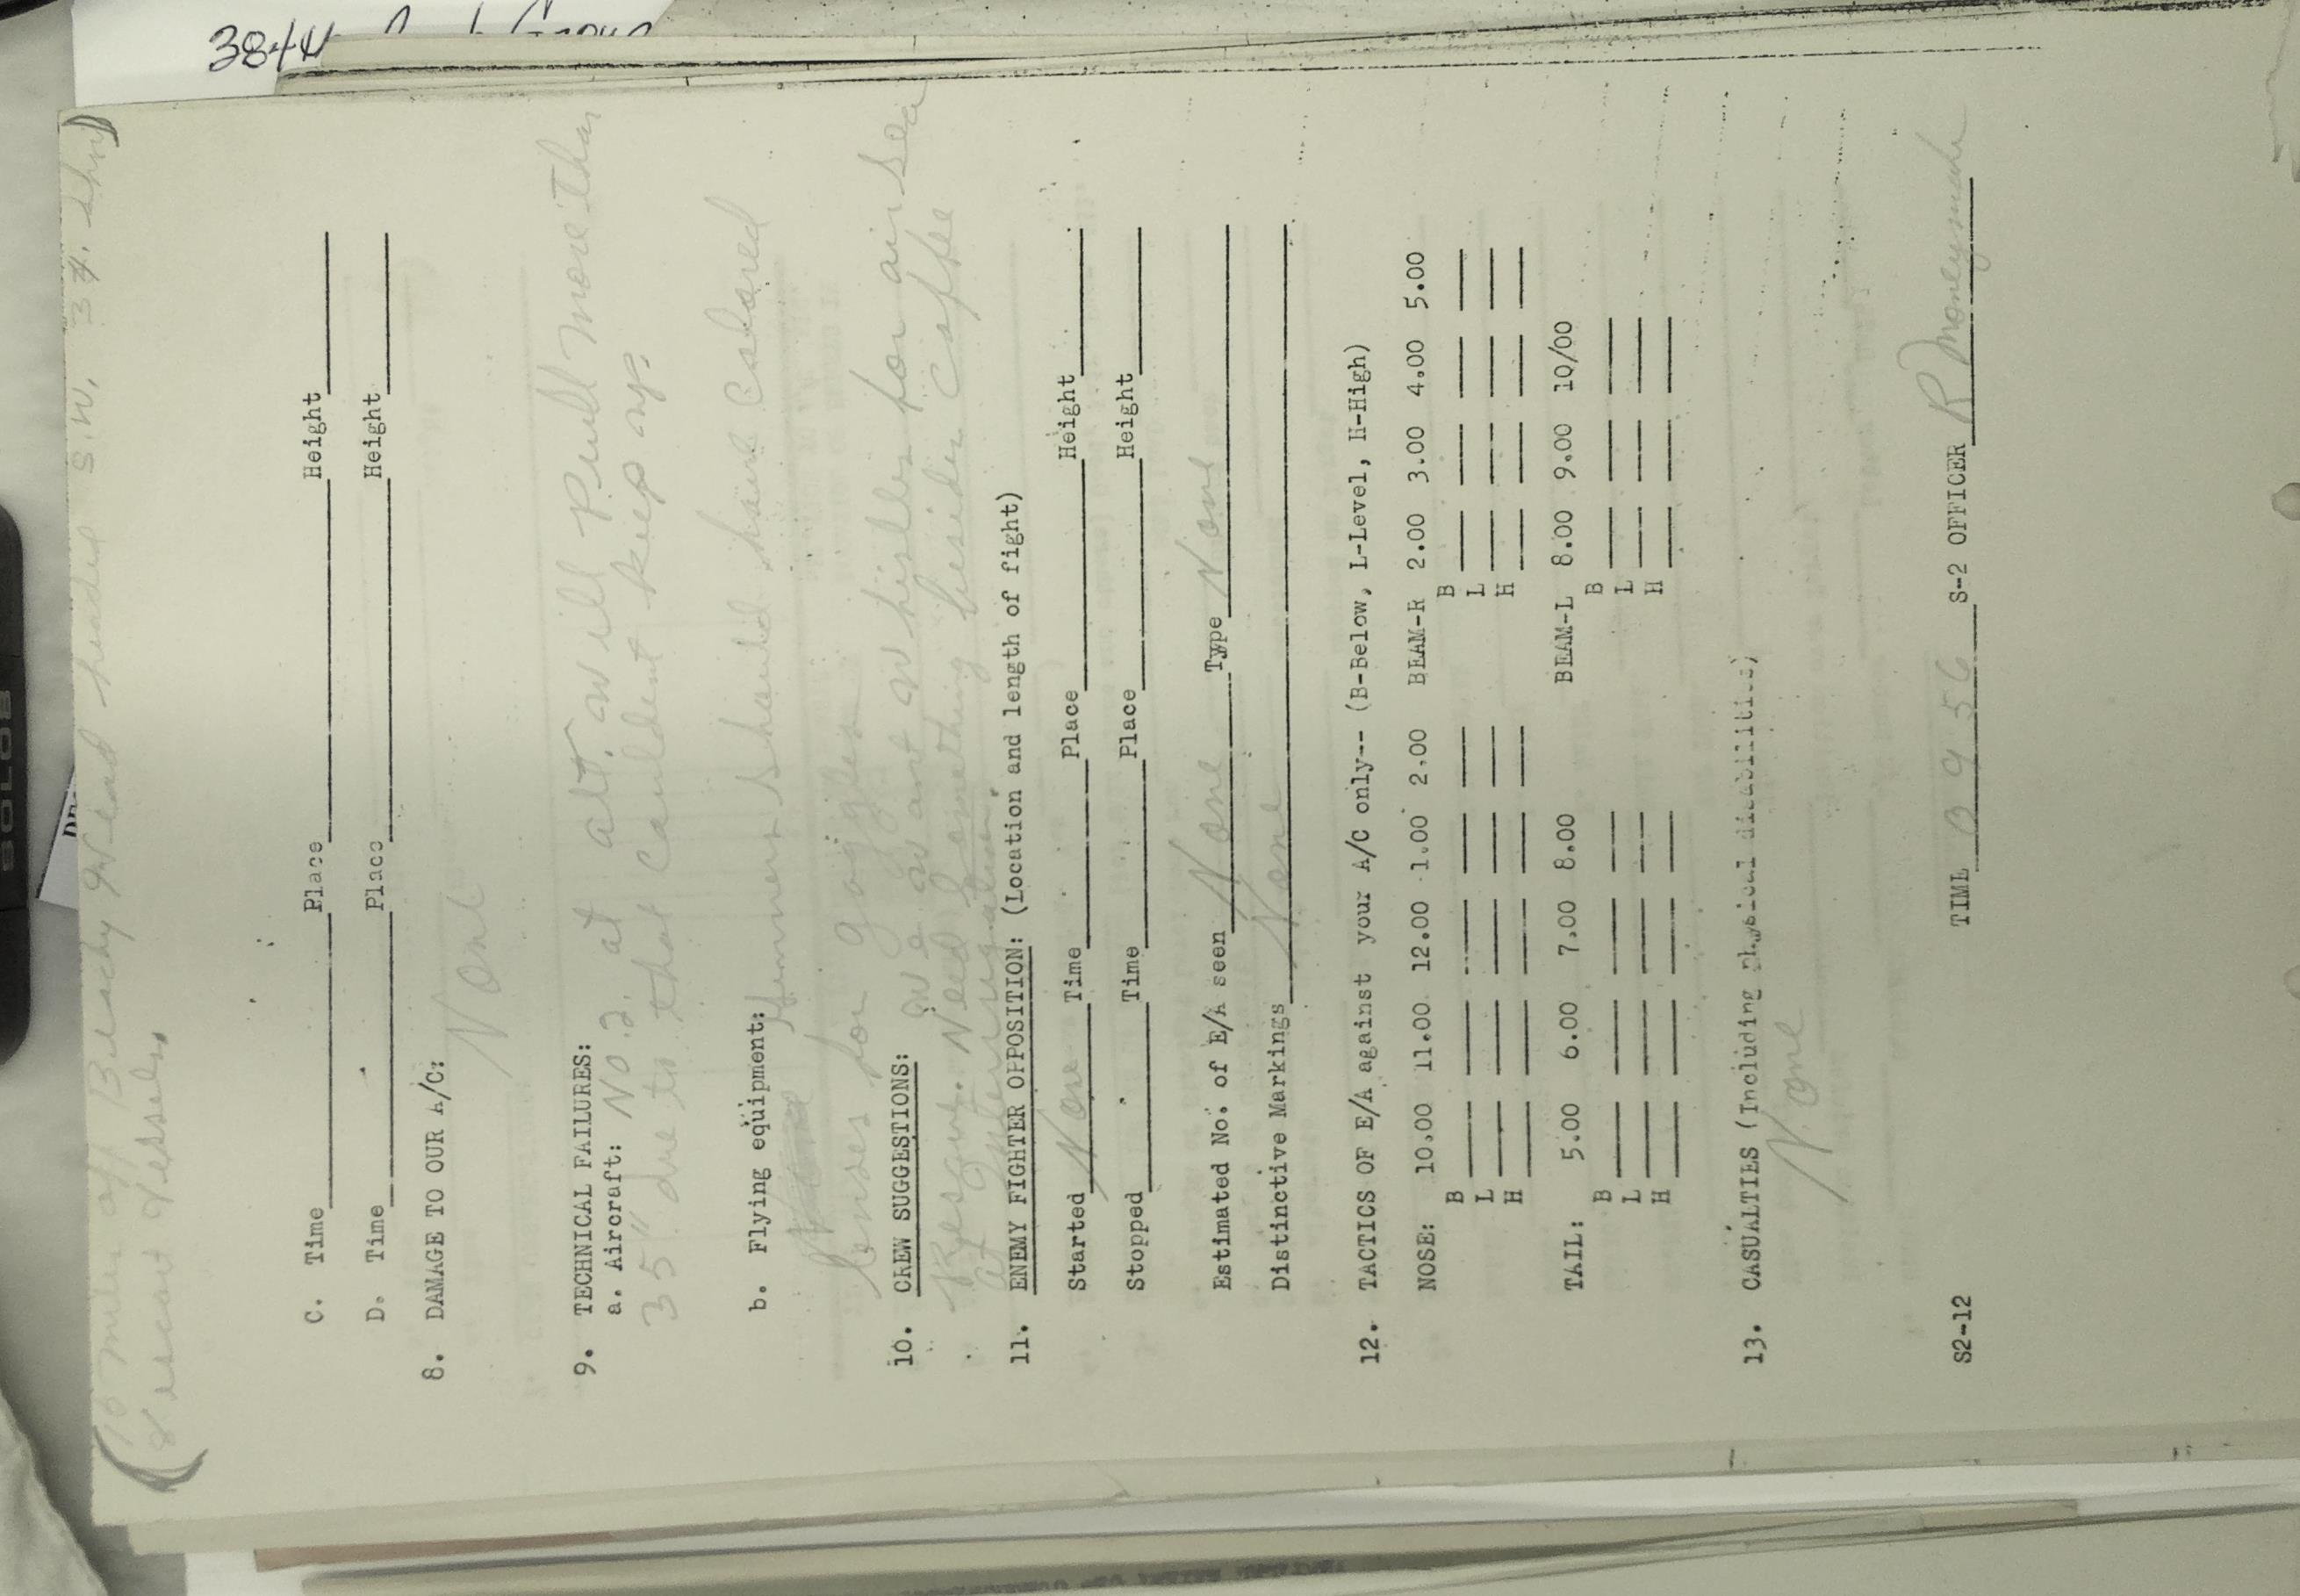 384th
(10 miles off Beachy Head headed S.W. 3 34. ships)
8 escort vessels,
C. Time Place Height
D. Time Place Height
8. DAMAGE TO OUR A/C:
None
9. TECHNICAL FAILURES:
a. Aircraft: No. 2. at alt. will pull more than
35" due to that couldent keep up.
b. Flying equipment: Gunners should have colored
lenses for goggles
10. CREW SUGGESTIONS: we want whistles for air sea
Resque. Need something besides coffee
at interrogation
11. ENEMY FIGHTER OPPOSITION: (Location and length of fight)
Started None Time Place Height
Stopped Time Place Height
Estimated No. of E/A seen None Type None
Distinctive Markings None
12. TACTICS OF E/A against your A/C only-- (B-Below, L-Level, H-High)
NOSE: 10.00 11.00 12.00 1.00 2.00 BEAM-R 2.00 3.00 4.00 5.00
B B
L L
H H
TAIL: 5.00 6.00 7.00 8.00 BEAM-L 8.00 9.00 10/00
B B
L L
H H
13. CASUALTIES (Including physical disabilities)
None
TIME 0956 S-2 OFFICER R Moneymake
S2-12
SOLO8